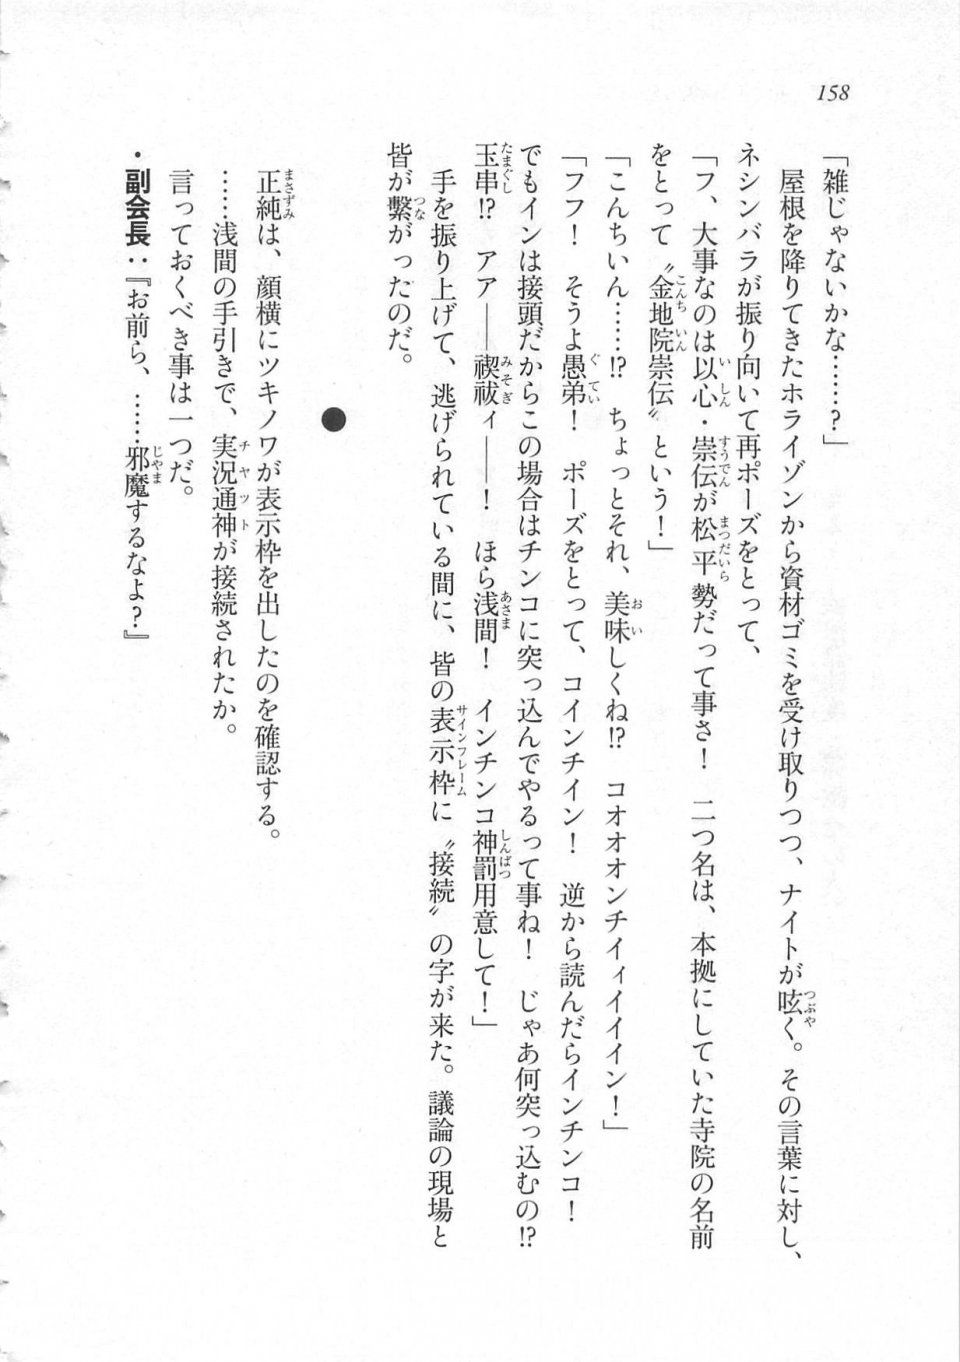 158
「雑じゃないかな……？」
屋根を降りてきたホライゾンから資材ゴミを受け取りつつ、ナイトが呟く。その言葉に対し、
ネシンバラが振り向いて再ポーズをとって、
「フ、大事なのは以心・崇伝が松平勢だって事さ！　二つ名は、本拠にしていた寺院の名前
をとって〝金地院崇伝〟という！」
「こんちいん……!?　ちょっとそれ、美味しくね!?　コオオオンチイィイイイン！」
「フフ！　そうよ愚弟！　ポーズをとって、コインチイン！　逆から読んだらインチンコ！
でもインは接頭だからこの場合はチンコに突っ込んでやるって事ね！　じゃあ何突っ込むの!?
玉串!?　アア――禊祓ィ――！　ほら浅間！　インチンコ神罰用意して！」
手を振り上げて、逃げられている間に、皆の表示枠に〝接続〟の字が来た。議論の現場と
皆が繋がったのだ。
●
正純は、顔横にツキノワが表示枠を出したのを確認する。
……浅間の手引きで、実況通神が接続されたか。
言っておくべき事は一つだ。
・副会長：『お前ら、……邪魔するなよ？』